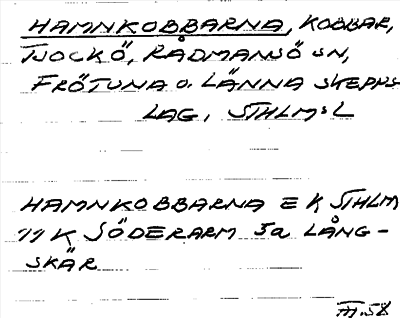 HAMNKOBBARNA, KOBBAR,
TJOCKÖ, RÅDMANSÖ SN,
FRÖTUNA O. LÄNNA SKEPPS-
LAG, STHLMS L
HAMNKOBBARNA E K STHLM
11 K SÖDERARM 5a LÅNG-
SKÄR
III.58